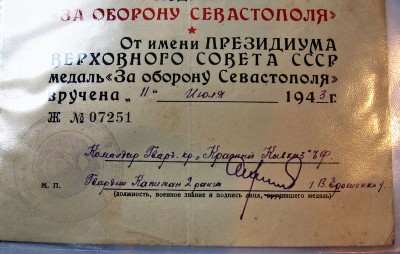 «ЗА ОБОРОНУ СЕВАСТОПОЛЯ»
От имени ПРЕЗИДИУМА
ВЕРХОВНОГО СОВЕТА СССР
медаль «За оборону Севастополя»
вручена „11" Июля 1943 г.
Ж № 07251
Командир Гвар. кр. „Красный Кавказ" ЧФ.
м. п. Гвардии Капитан 2 ранга
(должность, военное звание и подпись лица, вручившего медаль)